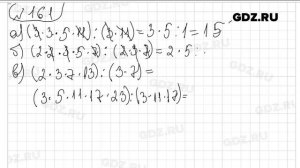 № 161
а) (2·3·5·11) : (2·11) = 3·5:1 = 15
б) (2·2·3·5·7) : (2·3·7) = 2·5
в) (2·3·7·13) : (3·7) =
(3·5·11·17·23) : (3·11·17) =
GDZ.RU